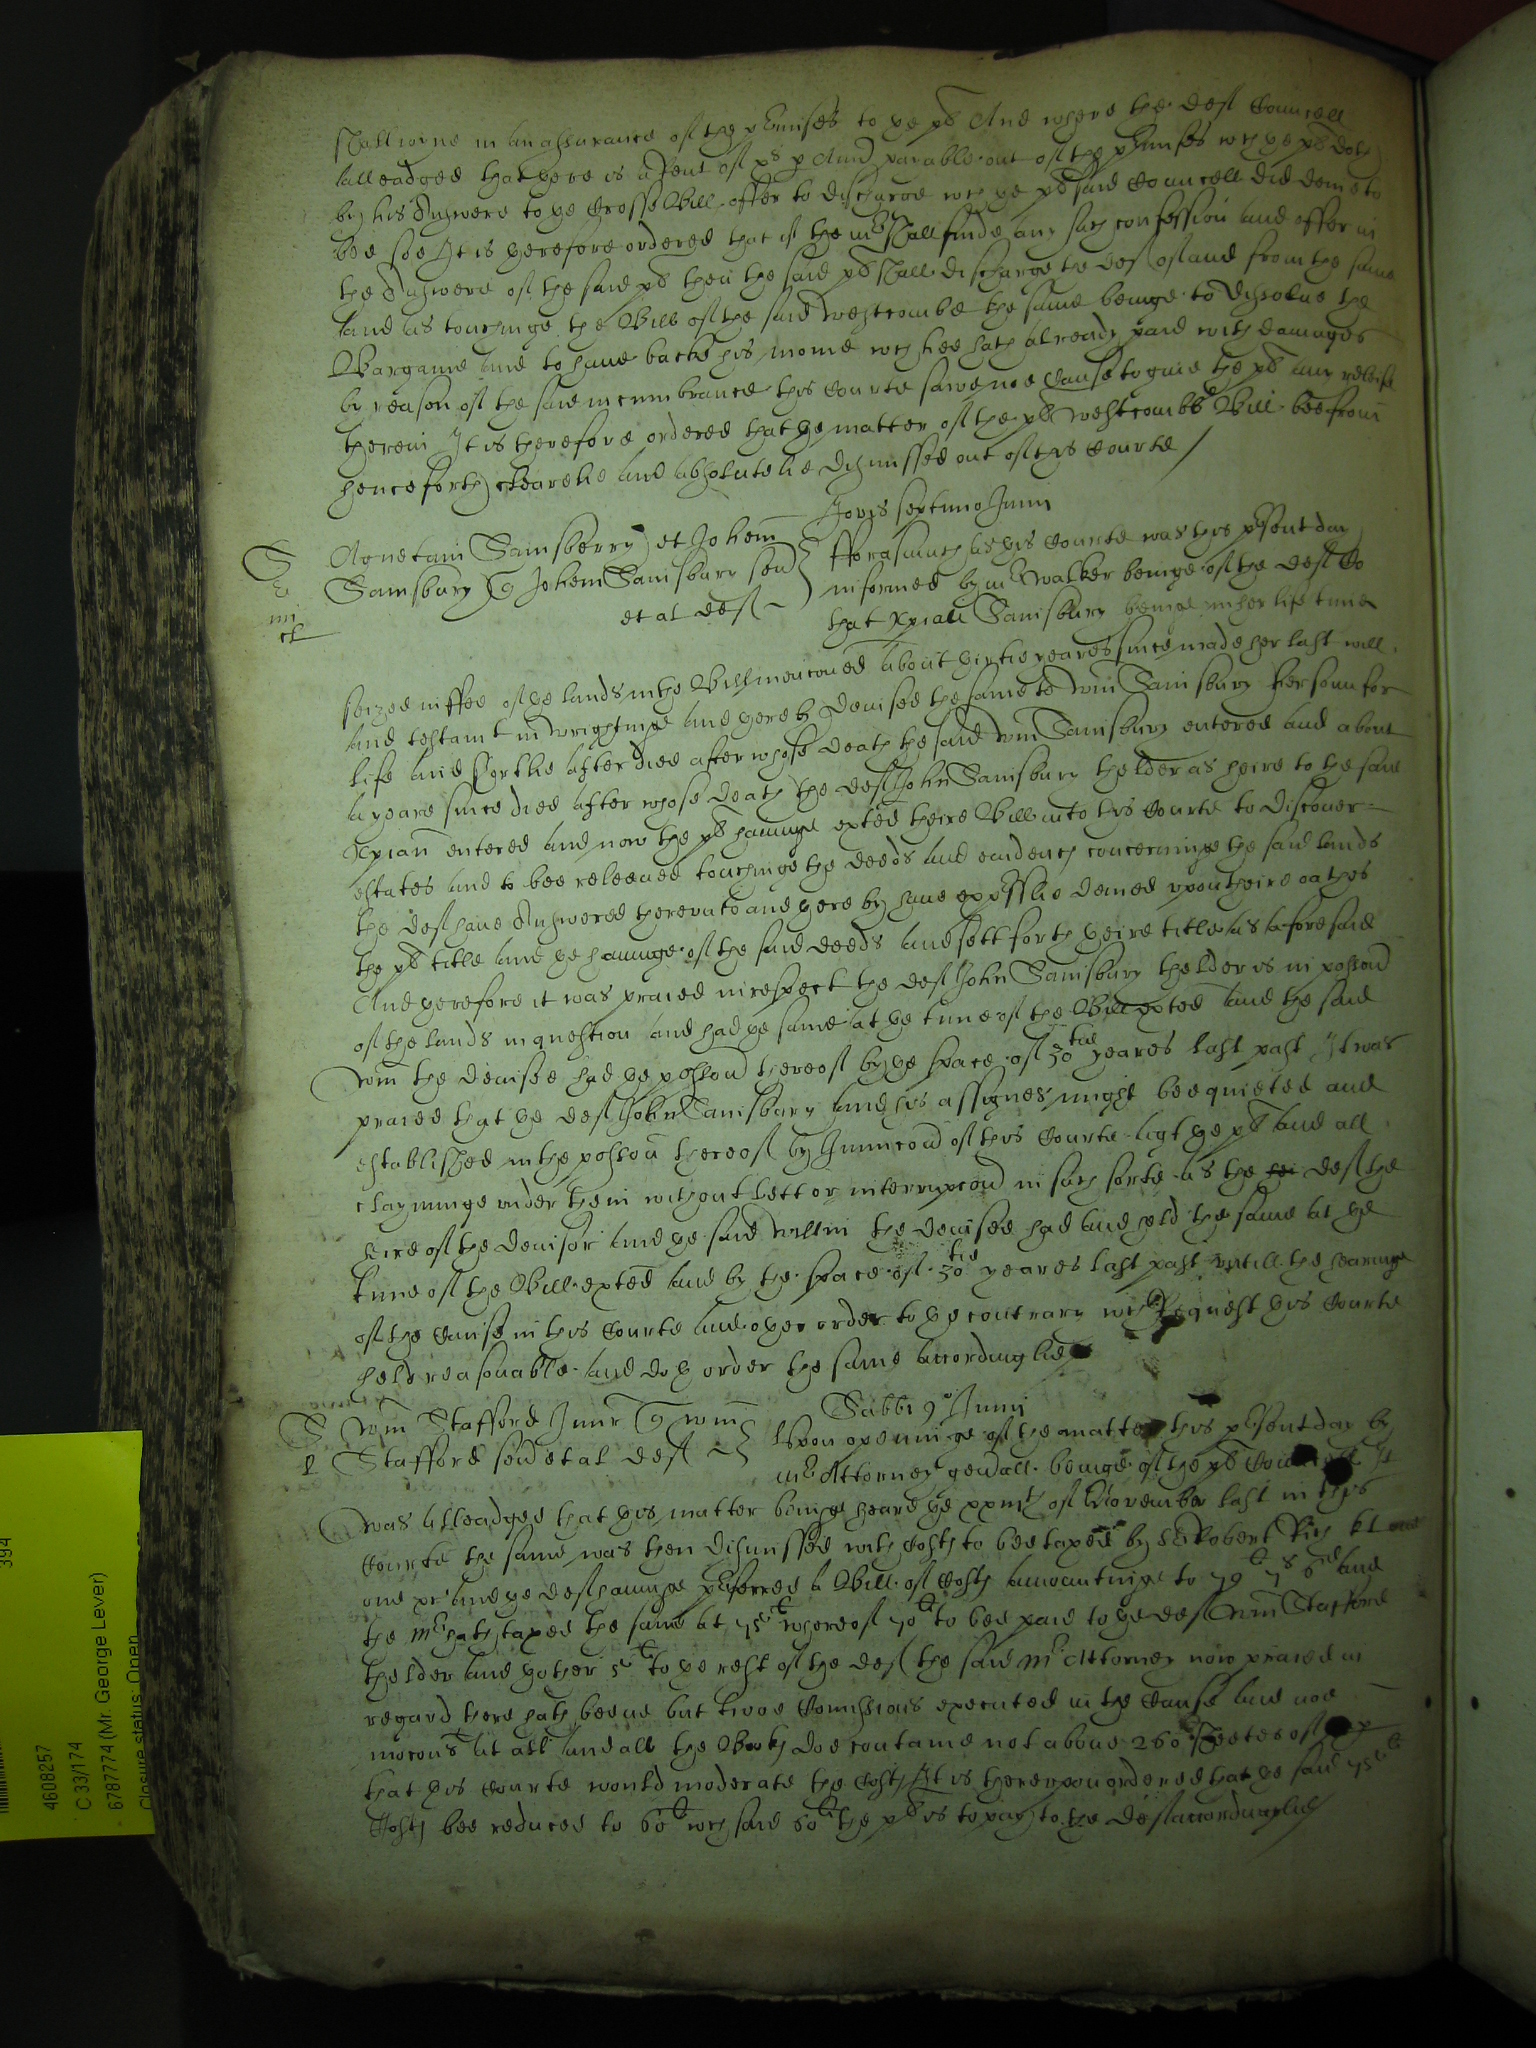 shall ioyne in an assurance of the pmisses to ye pl And where the def Councell
alleadged that there is a Rent of xs p Ann payable out of the pmisses wch ye pl doth
by his Answere to ye Crosse Bill offer to discharge wch ye pl said Councell did denie to
bee soe It is therefore ordered that if the mr shall finde any such confession and offer in
the Answere of the said pl then the said pl shall discharge the def of and from the same
and as touchinge the Bill of the said Westcombe the same beinge to dissolue the
Bargaine and to haue backe his monie wch hee hath already paid with damages
by reason of the said incumbrance this Courte sawe noe Cause to giue the pl any releife
therein It is therefore ordered that the matter of the pl Westcombs Bill bee from
henceforth clearelie and absolutelie dismissed out of this Courte
Jovis septimo Junii
S
Agnetam Sainsberry et Johem
Sainsbury q Johem Sainsbury sen
et al def
fforasmuch as this Courte was this psent day
informed by mr Walker beinge of the def Co
that Xpian Sainsbury beinge in her life time
seized in ffee of ye lands in the Bill mencioned about thirtie yeares since made her last will
and testamt in wrightinge and thereby deuised the same to Wm Sainsbury her sonn for
life and shortlie after died after whose death the said Wm Sainsbury entered and about
a yeare since died after whose death the def John Sainsbury thelder as heire to the said
Xpian entered and now the pl hauinge exted theire Bill into this Courte to discouer
estates and to bee releeued touchinge the deeds and euidencs concerninge the said lands
the def haue Answered therevnto and thereby haue expsslie denied vpon theire oathes
the pl title and the hauinge of the said deeds and sett forth theire title as aforesaid
And therefore it was praied in respect the def John Sainsbury thelder is in possion
of the lands in question and had ye same at the time of the Bill exted and the said
Wm the deuisee had ye possion thereof by ye space of 30tie yeares last past It was
praied that ye def John Sainsbury and his assignes might bee quieted and
established in the possion thereof by Iniuncion of this Courte agt ye pl and all
clayminge vnder them without lett or interrupcion in such sorte as the def the
heire of the deuisor and ye said Willm the deuisee had and held the same at ye
time of the Bill exted and by the space of 30tie yeares last past vntill the hearinge
of the Cause in this Courte and other order to ye contrary wch Request this Courte
held reasonable and doth order the same accordinglie
S
Wm Stafford Junr q Wm
Stafford sen et al def
Sabbi 9o Junii
Vpon openinge of the matter this psent day by
mr Attorney genrall beinge of the pl Councell It
was alleadged that this matter beinge heard ye xxiiith of November last in this
Courte the same was then dismissed with Costs to bee taxed by Sr Robert Rich kt
one &c And ye def hauinge pferred a Bill of Costs amountinge to 79l 7s 6d and
the Mr hath taxed the same at 75l whereof 70l to bee paid to ye def Wm Stafford
thelder and thother 5l to ye rest of the def the said Mr Attorney now praied in
regard there hath beene but twoe Comissions executed in the Cause and noe
mocons at all and all the Books doe containe not aboue 260 sheetes of
that this Courte would moderate the Costs It is therevpon ordered that ye said 75l
Costs bee reduced to 60l wch said 60l the pl is to pay to the def accordinglie
394
4608257
C 33/174
6787774 (Mr. George Lever)
Closure status: Open